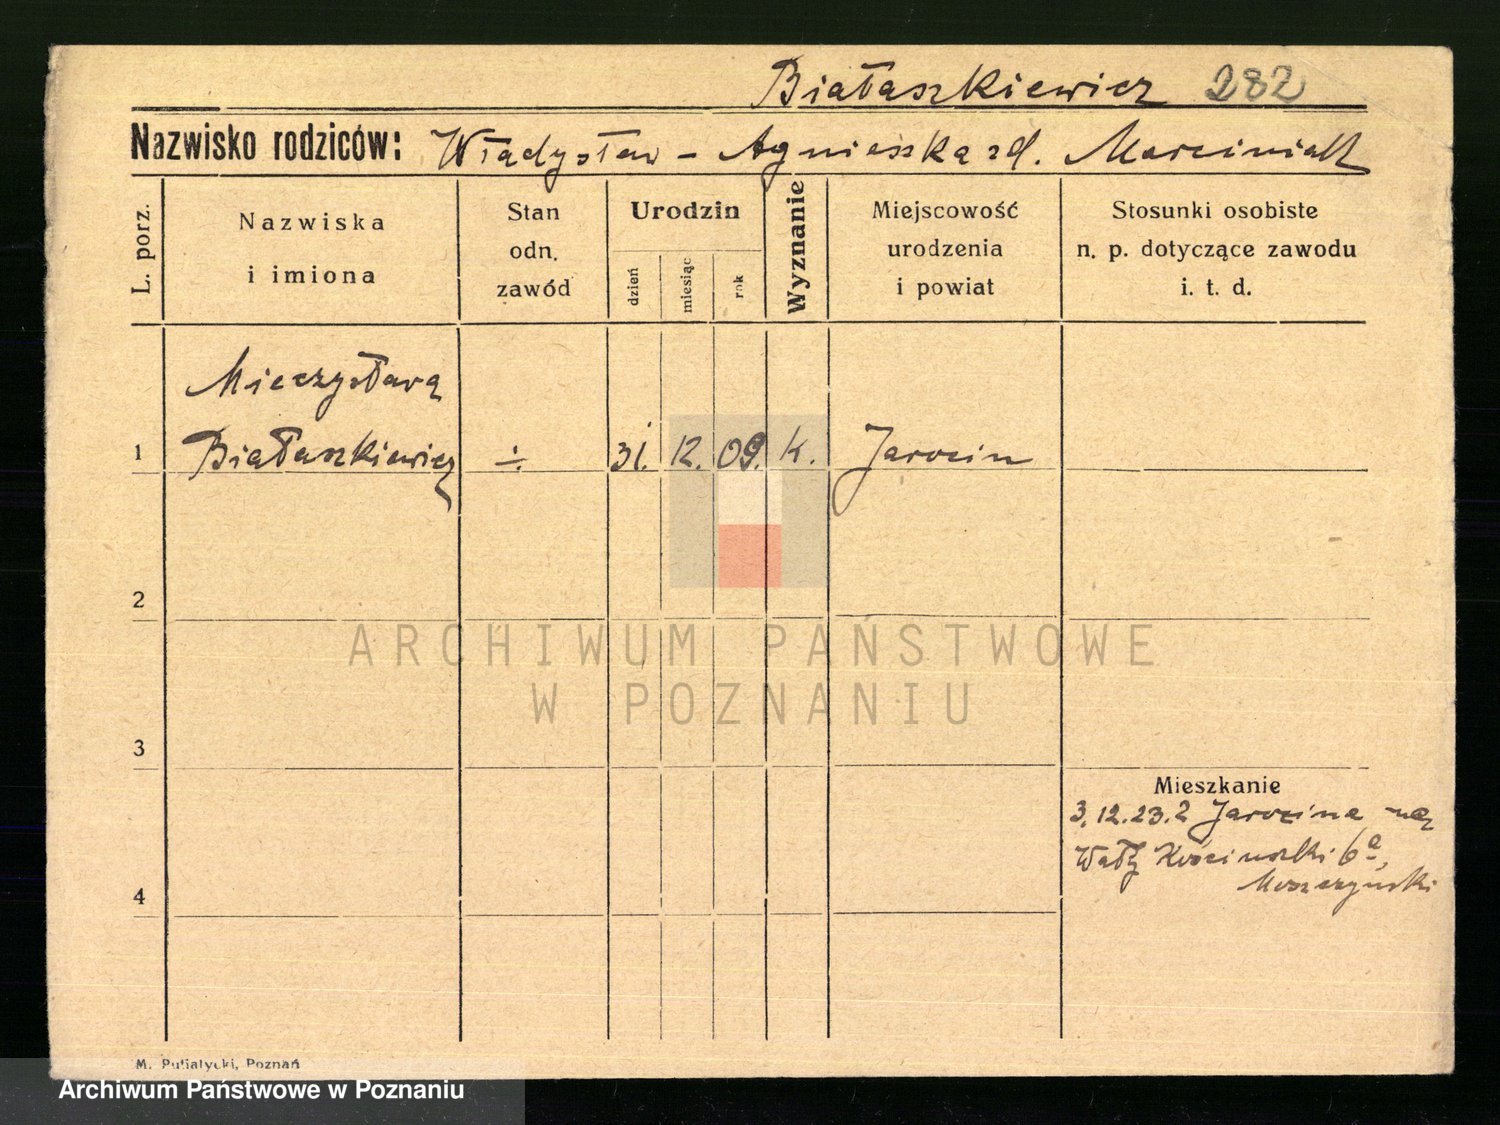 Białaszkiewicz 282
Nazwisko rodziców: Władysław - Agnieszka zd. Marciniak
L. porz.
Nazwiska
i imiona
Stan
odn.
zawód
Urodzin
dzień
miesiąc
rok
Wyznanie
Miejscowość
urodzenia
i powiat
Stosunki osobiste
n. p. dotyczące zawodu
i. t. d.
Mieczysława
1 Białaszkiewicz ÷ 31. 12. 09. k. Jarocin
2
ARCHIWUM PAŃSTWOWE
W POZNANIU
3
Mieszkanie
3.12.23. z Jarocina na
Wały 6a,
4
Moszczyński
M. Putiatycki, Poznań
Archiwum Państwowe w Poznaniu